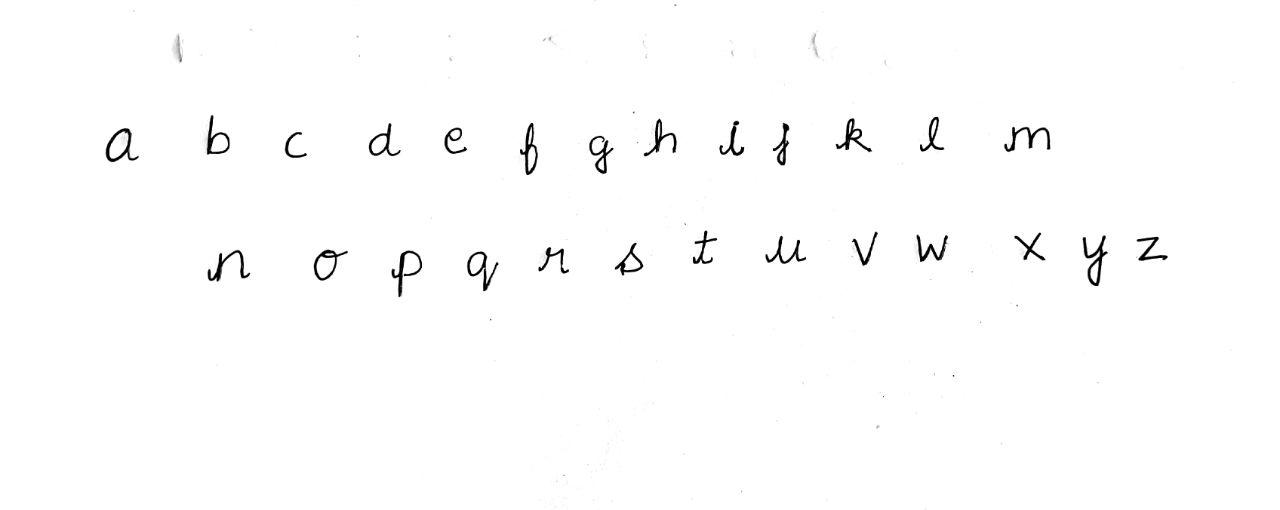 a b c d e f g h i j k l m
n o p q r s t u v w x y z